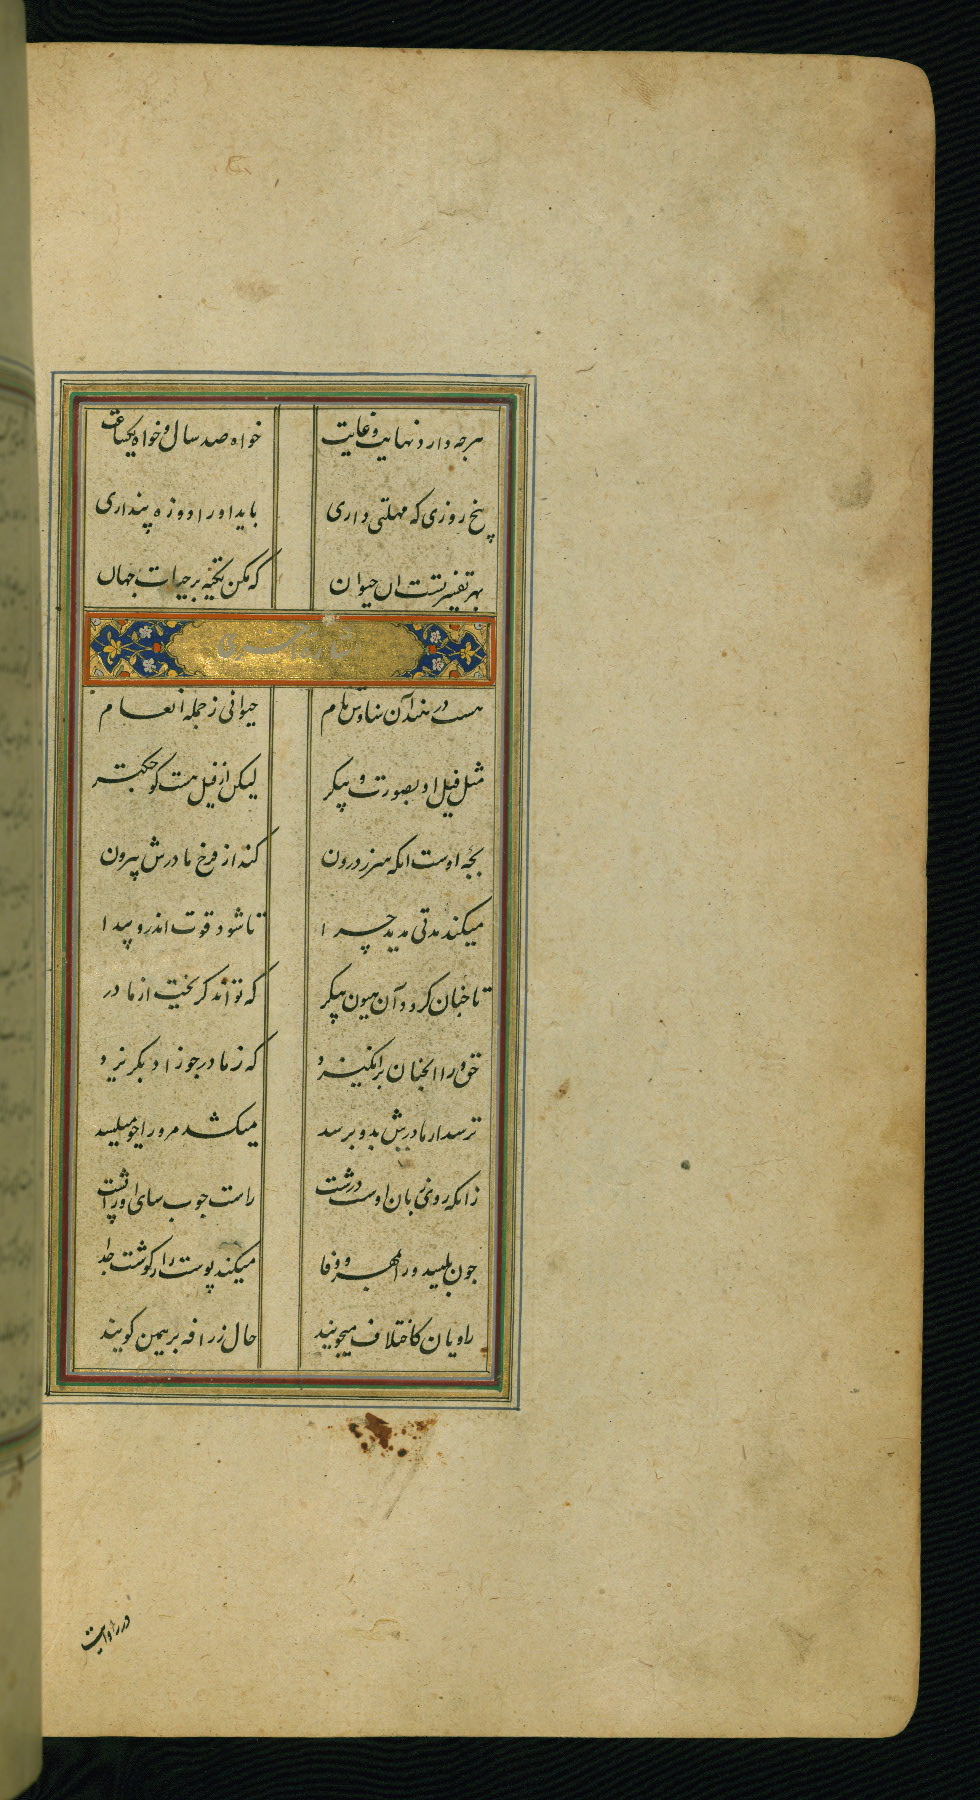 هرجه دارد نهایت و غایت خواه صد سال و خواه یکساعت
پنج روزی که مهلتی داری باید اورا دو روزه پنداری
بهر تفسیر تست ان حیوان که مکن تکیه بر حیات جهان
هست در هند آن سناوس نام حیوانی ز جمله انعام
مثل فیل او بصورت و پیکر لیکن از فیل هست کوجکتر
بجه اوست انکه سر ز درون کند از فرخ مادرش بیرون
میکند مدتی مدید چرا تا شود قوت اندرو پیدا
تا جنان کردد آن همیون پیکر که تواند کریخت از مادر
حق ورا انجنان برانکیزد که ز مادر جو زاد بکریزد
ترسد ار مادرش بدو برسد میکشد مرورا جو میلیسد
زانکه روی زبان اوست درشت راست جوب سای اورا پشت
جون بلیسد ورا بمهر و وفا میکند پوست را ز کوشت جدا
راویان کاختلاف میجویند حال زرافه بر همین کویند
در روایت